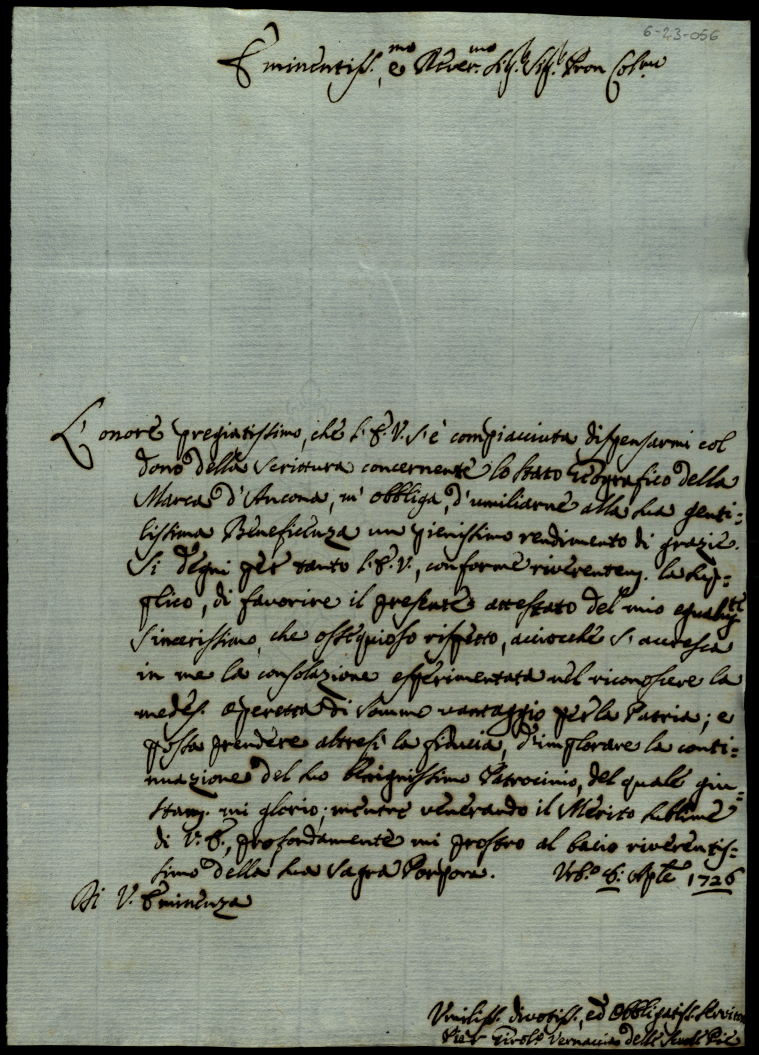 6-23-056
Eminentiss.mo e Rever.mo Sig.r Sig.r Pron Col.mo
L'onore pregiatissimo, che l'E.V. s'è compiacciuta dispensarmi col
dono della Scrittura concernente lo stato Geografico della
Marca d'Ancona, m'obbliga, d'umiliarne alla sua genti:
lissima Beneficenza un pienissimo rendimento di grazie.
Si degni per tanto l'E.V., conforme riverentem. la sup=
plico, di favorire il presente attestato del mio egualm.te
sincerissimo, che ossequioso rispetto, acciocchè si accresca
in me la consolazione esperimentata nel riconoscere la
medes. operetta di sommo vantaggio per la Patria; e
possa prendere altresì la fiducia, d'implorare la conti=
nuazione del suo Benignissimo Patrocinio, del quale giu=
stam. mi glorio; mentre venerando il Merito sublime
di V. E., profondamente mi prostro al bacio riverentis=
simo della sua Sagra Porpora. Urb.o 6: Aple 1726
Di V. Eminenza
Umiliss. divotiss., ed Obbligatiss. Servitore
Pier Girol.o Vernaccia delle Scuole Pie